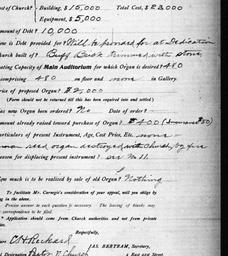 of Church? Building, $15,000 Total Cost, $23,000
Equipment, $5,000
mount of Debt? 10,000
is Debt provided for? Will be provided for at Dedication
Church built of? Buff Brick trimmed with stone
ating Capacity of Main Auditorium for which Organ is desired? 450
comprising 450 on floor and none in Gallery.
rice of proposed Organ? $2,000
(Form should not be returned till this has been enquired into and settled.)
as new Organ been ordered? No Date of order?
mount already raised towards purchase of Organ? $400
articulars of present Instrument, Age, Cost Price, Etc. none
reed organ destroyed with Church by fire
reason for displacing present instrument? see No 11.
ow much is to be realized by sale of old Organ? Nothing
To facilitate Mr. Carnegie's consideration of your appeal, will you oblige by filling in the above.
Precise answer to each question is necessary. The leaving of thirdly may
correspondence to be filed.
Application should be from Church authorities and not from private
Respectfully,
JAS. BERTRAM, Secretary,
Designation Pastor Church